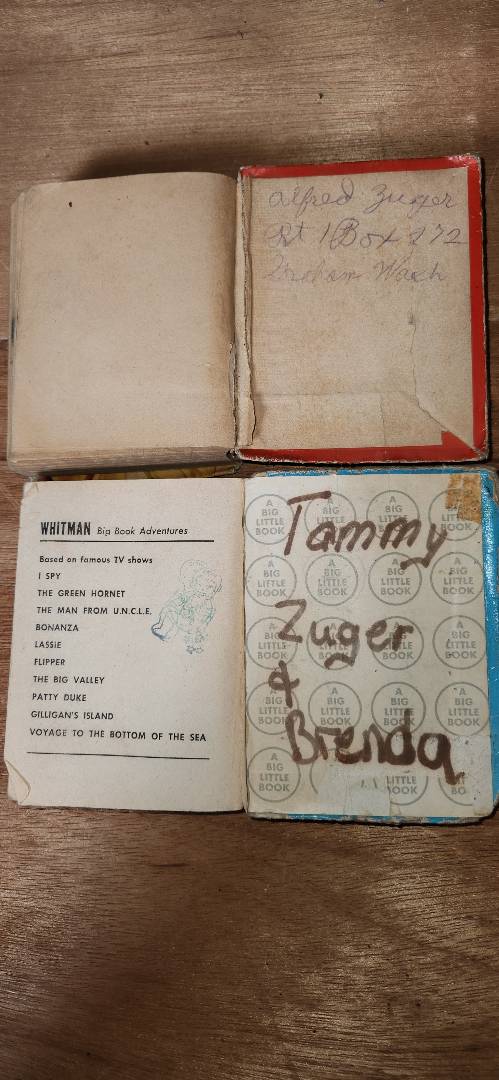 Alfred Zuger
Rt 1 Box 272
Graham Wash
WHITMAN Big Book Adventures
Based on famous TV shows
I SPY
THE GREEN HORNET
THE MAN FROM U.N.C.L.E.
BONANZA
LASSIE
FLIPPER
THE BIG VALLEY
PATTY DUKE
GILLIGAN'S ISLAND
VOYAGE TO THE BOTTOM OF THE SEA
A BIG LITTLE BOOK
Tammy
Zuger
&
Brenda